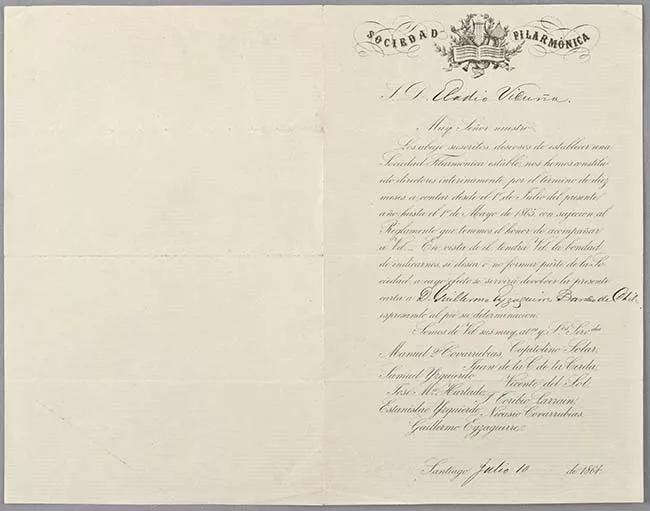 SOCIEDAD FILARMÓNICA
S. D. Eladio Vicuña.
Muy Señor nuestro
Los abajo suscritos, deseosos de establecer una
Sociedad Filarmónica estable, nos hemos constitu
ido directores interinamente por el término de diez
meses a contar desde el 1º de Julio del presente
año hasta el 1º de Mayo de 1865, con sujecion al
Reglamento que tenemos el honor de acompañar
a Vd.- En vista de él tendrá Vd. la bondad
de indicarnos, si desea o no formar parte de la So
ciedad a cuyo efecto se servirá devolver la presente
carta a D. Guillermo Eyzaguirre Banco de Chile
espresando al pie su determinacion.
Somos de Vd. sus muy atos. y Ss. Servdes.
Manuel 2º Covarrubias, Capitolino Solar,
Juan de la C. de la Cerda,
Samuel Yzquierdo
Vicente del Sol,
José Ma. Hurtado,
J. Toribio Larrain,
Estanislao Yzquierdo, Nicasio Covarrubias,
Guillermo Eyzaguirre,
Santiago Julio 10 de 1864